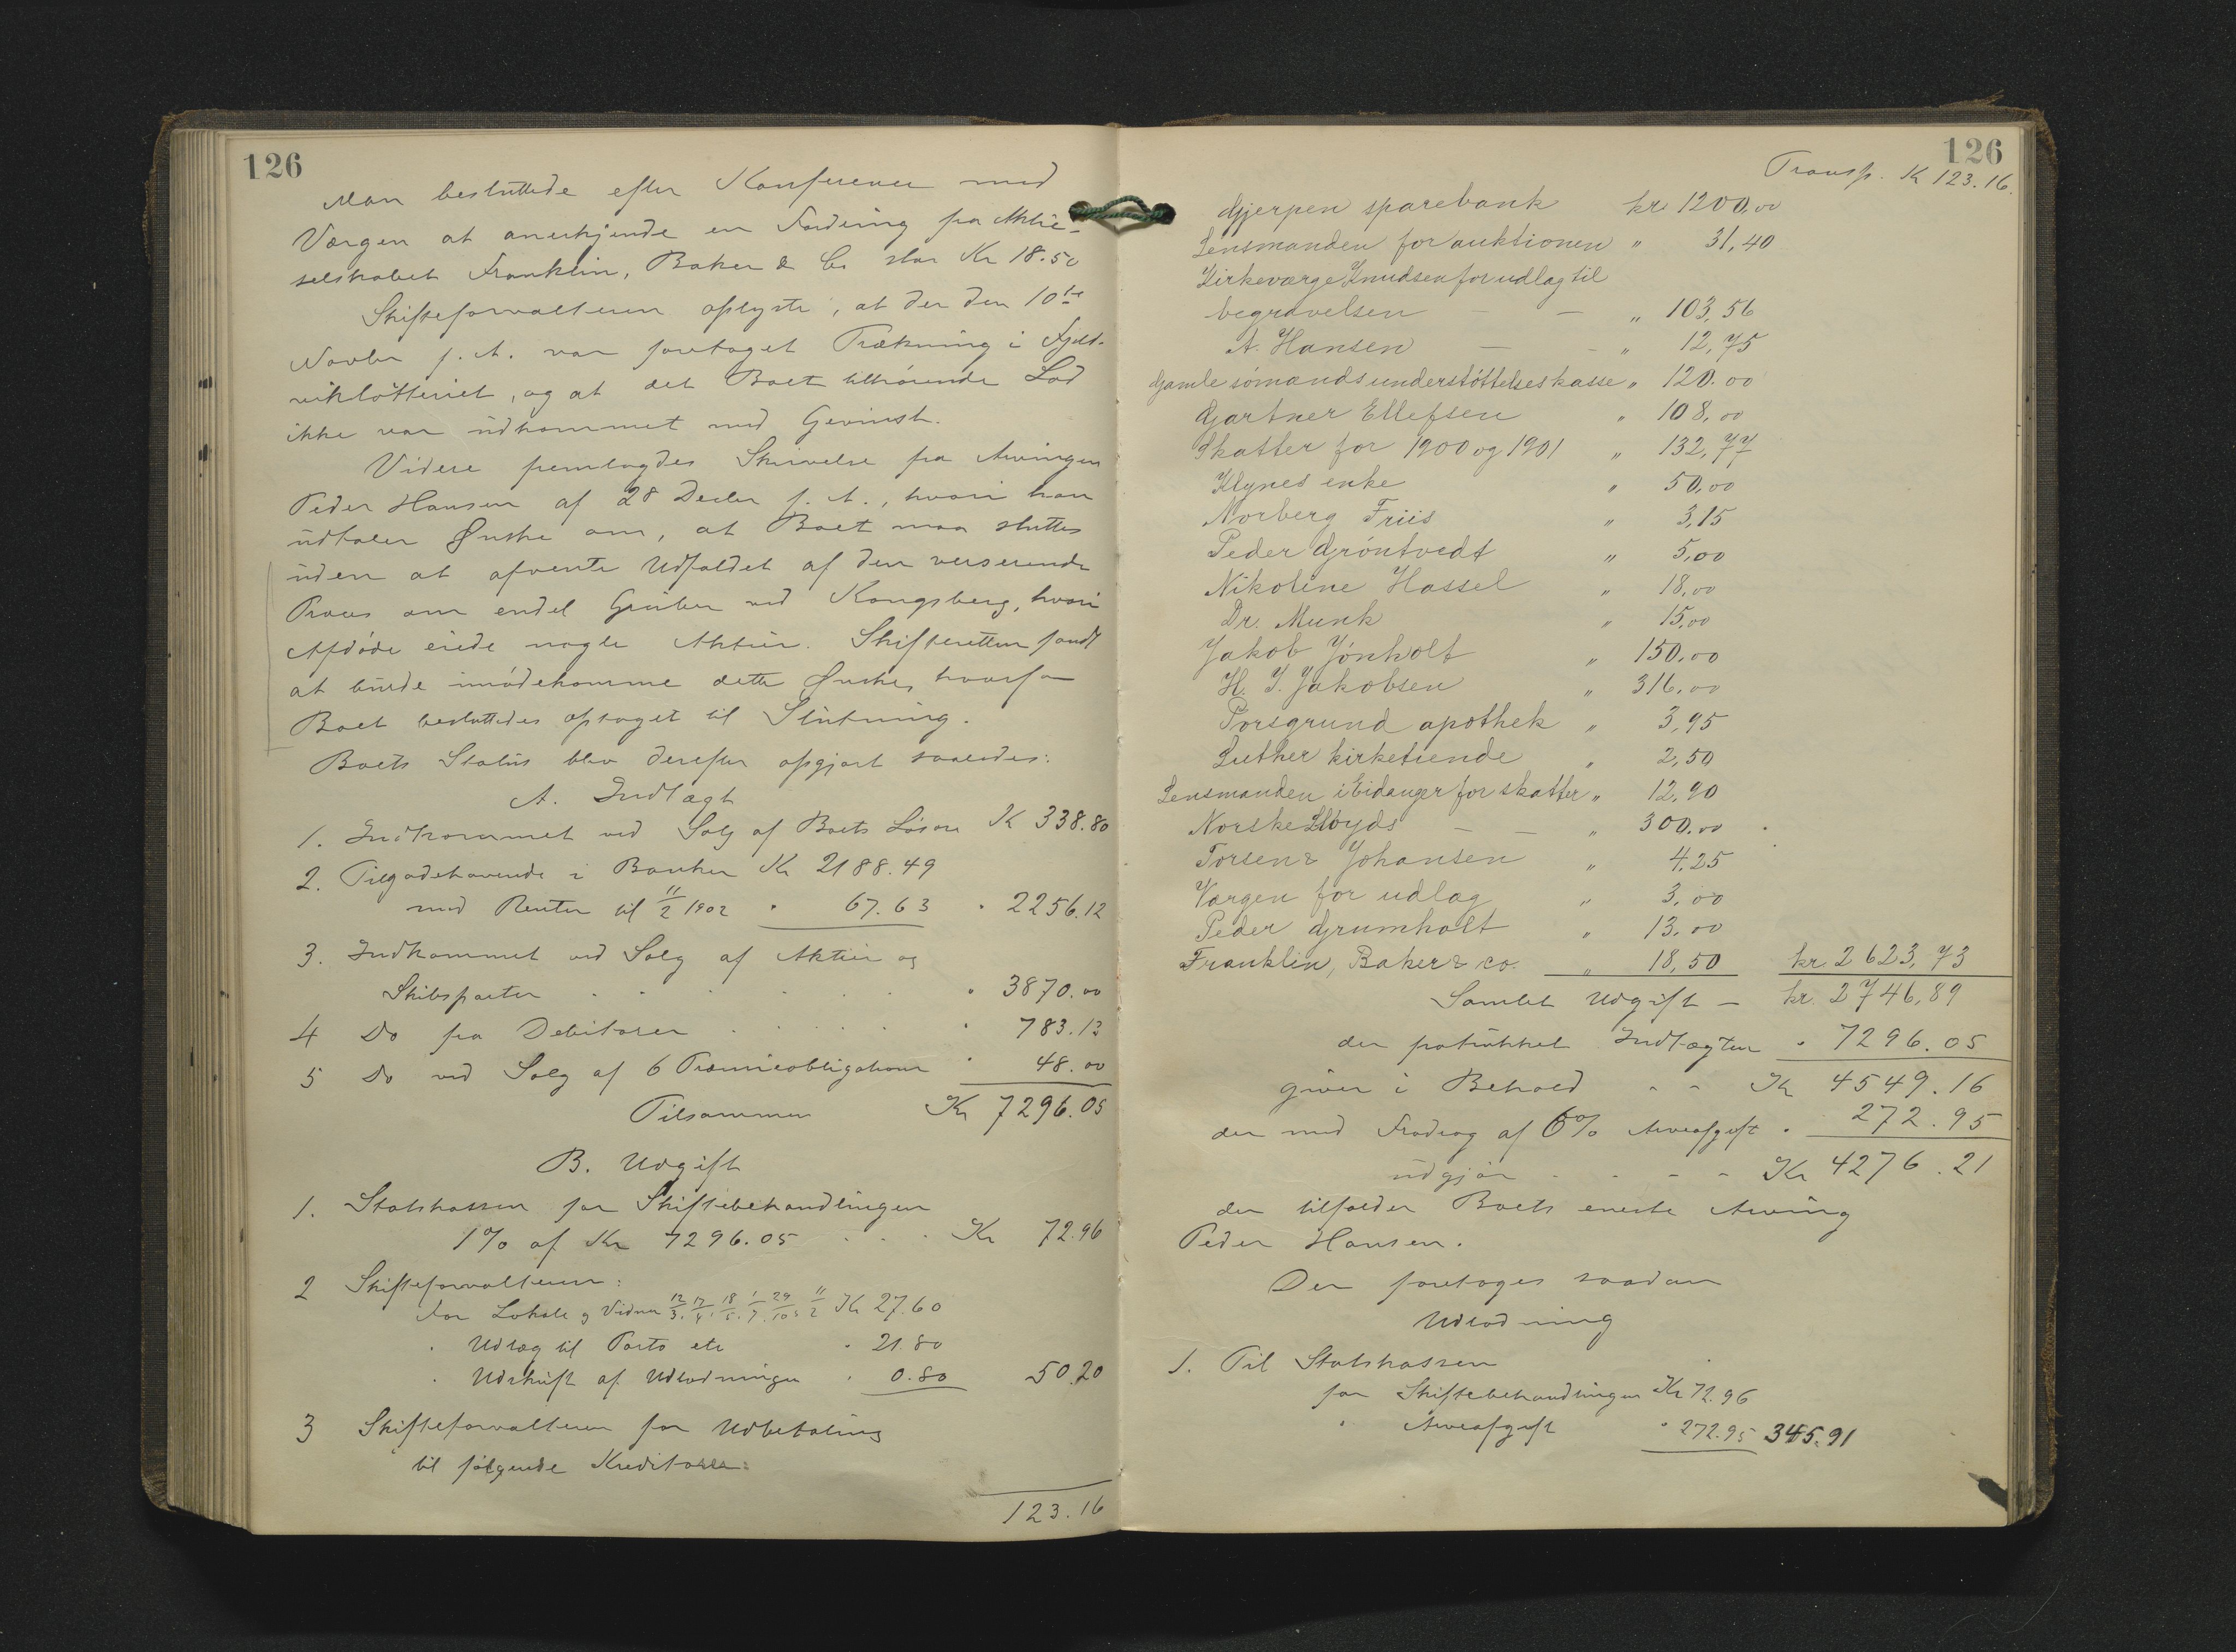 126
Man besluttede efter Konference med
Værgen at anerkjende en Fordring fra Aktie-
selskabet Franklin, Baker & Co stor Kr 18.50
Skifteforvalteren oplyste, at der den 10de
Novbr f. A. var foretaget Trækning i Fjeld-
viklotteriet, og at det Boet tilhørende Lod
ikke var udkommet med Gevinst.
Videre fremlagdes Skrivelse fra Arvingen
Peder Hansen af 28 Decbr f. A., hvori han
udtaler Ønske om, at Boet maa sluttes
uden at afvente Udfaldet af den verserende
Proces om endel Gruber ved Kongsberg, hvori
Afdøde eiede nogle Aktier. Skifteretten fandt
at burde imødekomme dette Ønske, hvorfor
Boet besluttedes optaget til Slutning.
Boets Status blev derefter opgjort saaledes:
A. Indtægt
1. Indkommet ved Salg af Boets Løsøre K 338.80
2. Tilgodehavende i Banken Kr 2188.49
med Renter til 11/2 1902 " 67.63 " 2256.12
3. Indkommet ved Salg af Aktier og
Skibsparter " 3870.00
4 Do fra Debitorer " 783.13
5 Do ved Salg af 6 Præmieobligationer " 48.00
Tilsammen Kr 7296.05
B. Udgift
1. Statskassen for Skiftebehandlingen
1% af Kr 7296.05 Kr 72.96
2 Skifteforvalteren:
for Lokale og Vidner 12/3. 17/4. 18/5. 1/7. 29/10 & 11/2 Kr 27.60
" Udlæg til Porto etc " 21.80
" Udskrift af Udlodningen " 0.80 50.20
3 Skifteforvalteren for Udbetaling
til følgende Kreditorer:
123.16
126
Transp. K 123.16.
Gjerpen sparebank kr 1200,00
Lensmanden for auktionen " 31,40
Kirkeværge Knudsen for udlag til
begravelsen — — " 103,56
A. Hansen — - " 12,75
Gamle sömænds understöttelseskasse " 120.00
Gartner Ellefsen " 108,00
Skatter for 1900 og 1901 " 132,77
Klynes enke " 50,00
Norberg Friis " 3,15
Peder Gröntvedt " 5,00
Nikoline Hassel " 18,00
Dr. Munk " 15,00
Jakob Jönholt " 150,00
H. J. Jakobsen " 316,00
Porsgrund apothek " 3,95
Luther kirketiende " 2,50
Lensmanden i Eidanger for skatter " 12,90
Norske Lloyds — — " 300,00
Torsen & Johansen " 4,25
Værgen for udlag " 3,00
Peder Grumholt " 13,00
Franklin, Baker & co. " 18,50 kr. 2623,73
Samlet Udgift — kr. 2746,89
der fratrukket Indtægten " 7296.05
giver i Behold - - Kr 4549.16
der med Fradrag af 6% Arveafgift " 272.95
udgjør - - - - Kr 4276.21
der tilfalder Boets eneste Arving
Peder Hansen.
Der foretoges saadan
Udlodning
1. Til Statskassen
for Skiftebehandlingen Kr 72.96
" Arveafgift " 272.95 345.91